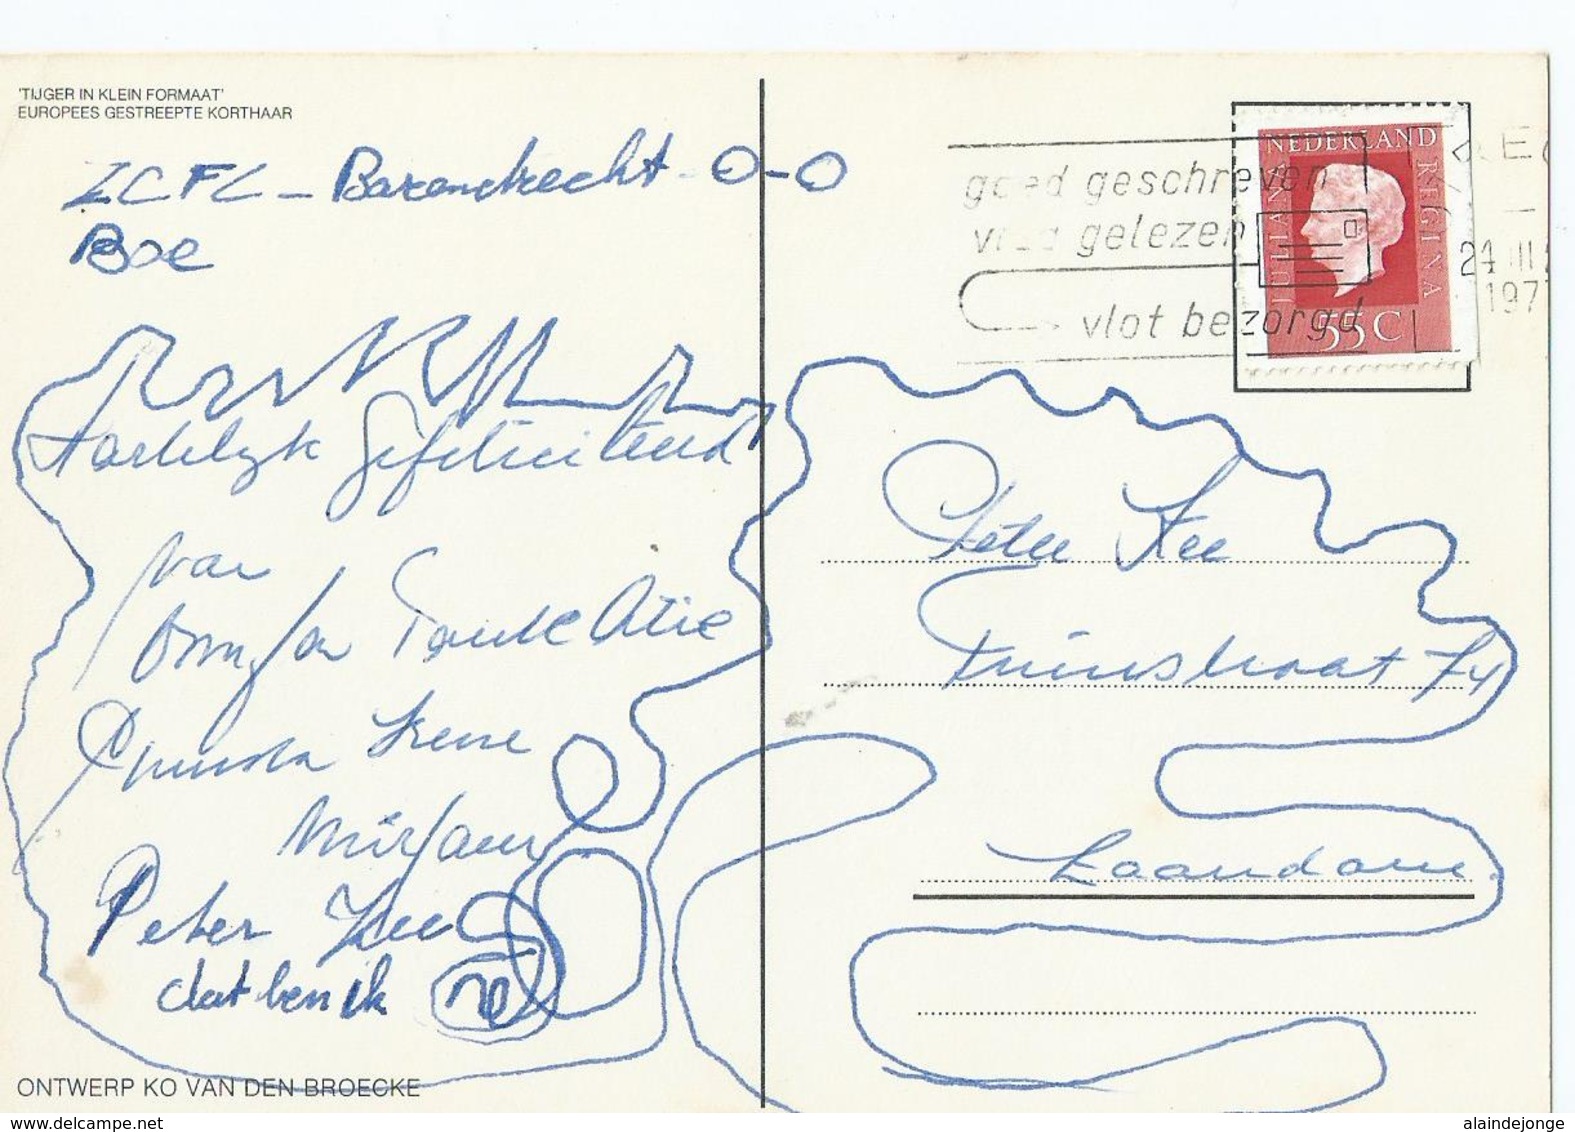 'TIJGER IN KLEIN FORMAAT'
EUROPEES GESTREEPTE KORTHAAR
ZCFC - Barendrecht - 0-0
Boe
Hartelijk Gefeliciteerd
van
Oma Tante Atie
Irene
Mirjam
Peter Zee
dat ben ik
ONTWERP KO VAN DEN BROECKE
goed geschreven
vlug gelezen
vlot bezorgd
NEDERLAND
JULIANA REGINA
55 C
24 III
197
Peter Zee
Zaandam
www.delcampe.net
alaindejonge